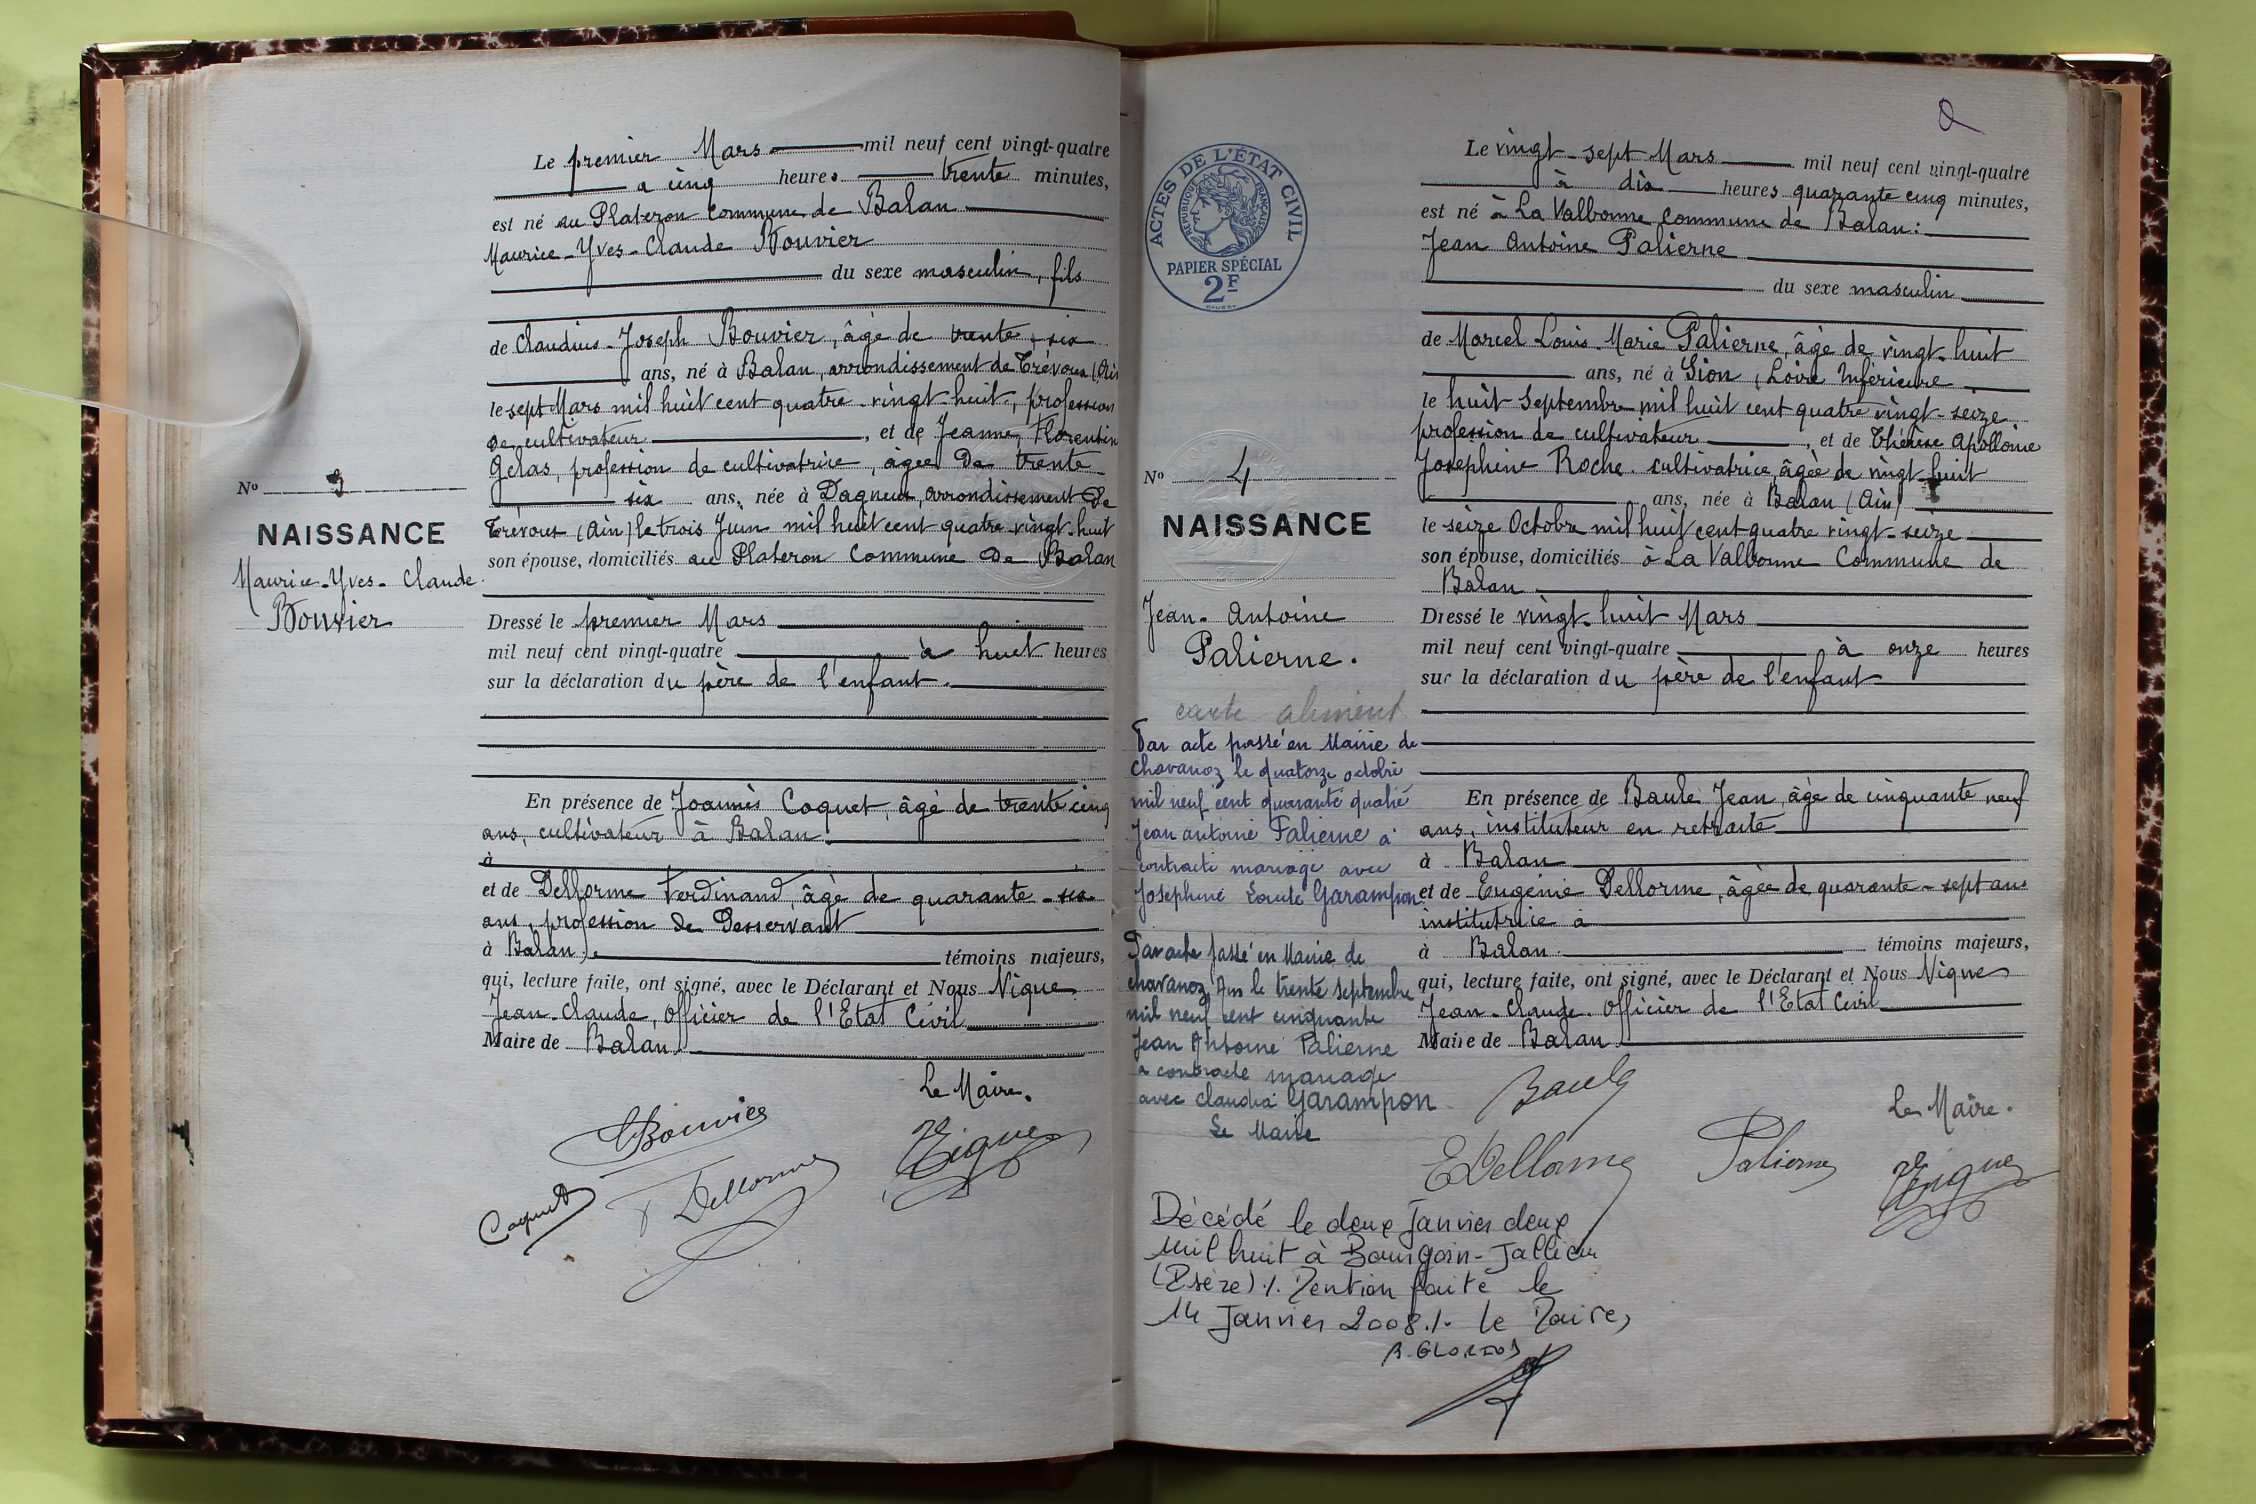 Le premier Mars mil neuf cent vingt-quatre
a cinq heures trente minutes,
est né au Plateron Commune de Balan
Maurice-Yves-Claude Bouvier
du sexe masculin, fils
de Claudius-Joseph Bouvier, âgé de trente-six
ans, né à Balan, arrondissement de Trévoux (Ain
le sept Mars mil huit cent quatre-vingt-huit, profession
de cultivateur, et de Jeanne Florentin
Gelas, profession de cultivatrice, âgée de trente
six ans, née à Dagneux, arrondissement de
Trévoux (Ain) le trois Juin mil huit cent quatre-vingt-huit
son épouse, domiciliés au Plateron Commune de Balan
Dressé le premier Mars
mil neuf cent vingt-quatre à huit heures
sur la déclaration du père de l'enfant.
En présence de Joannès Coquet, âgé de trente cinq
ans, cultivateur à Balan
à
et de Dellorme Ferdinand, âgé de quarante-six
ans, profession de Desservant
à Balan). témoins majeurs,
qui, lecture faite, ont signé, avec le Déclarant et Nous Nique
Jean-Claude, Officier de l'Etat Civil
Maire de Balan.
Le Maire.
Bouvier
Nique
Coquet
F Dellorme
No 3
NAISSANCE
Maurice-Yves-Claude
Bouvier
ACTES DE L'ÉTAT CIVIL
RÉPUBLIQUE FRANÇAISE
PAPIER SPÉCIAL
2F
No 4
NAISSANCE
Jean-Antoine
Palierne.
carte aliment
Par acte passé en Mairie de
Chavanoz le quatorze octobre
mil neuf cent quarante quatre
Jean antoine Palierne a
contracté mariage avec
Joséphine Louise Garampon
Par acte passé en Mairie de
chavanoz le trente septembre
mil neuf cent cinquante
Jean Antoine Palierne
a contracté mariage
avec Claudia Garampon
Le Maire
Le vingt-sept Mars mil neuf cent vingt-quatre
à dix heures quarante cinq minutes,
est né à La Valbonne Commune de Balan:
Jean Antoine Palierne
du sexe masculin
de Marcel Louis-Marie Palierne, âgé de vingt-huit
ans, né à Sion, (Loire Inférieure
le huit Septembre mil huit cent quatre vingt-seize
profession de cultivateur, et de Thérèse Apolloine
Josephine Roche. cultivatrice, âgée de vingt-huit
ans, née à Balan (Ain)
le seize Octobre mil huit cent quatre vingt-seize
son épouse, domiciliés à La Valbonne Commune de
Balan
Dressé le vingt-huit Mars
mil neuf cent vingt-quatre à onze heures
sur la déclaration du père de l'enfant
En présence de Baule Jean, âgé de cinquante neuf
ans, instituteur en retraite
à Balan
et de Eugénie Dellorme, âgée de quarante-sept ans
institutrice a
à Balan. témoins majeurs,
qui, lecture faite, ont signé, avec le Déclarant et Nous Nique
Jean-Claude. Officier de l'Etat Civil
Maire de Balan
Baule
Le Maire.
E Dellorme
Palierne
Nique
Décédé le deux Janvier deux
mil huit à Bourgoin-Jallieu
(Isère)./. Mention faite le
14 Janvier 2008./. Le Maire,